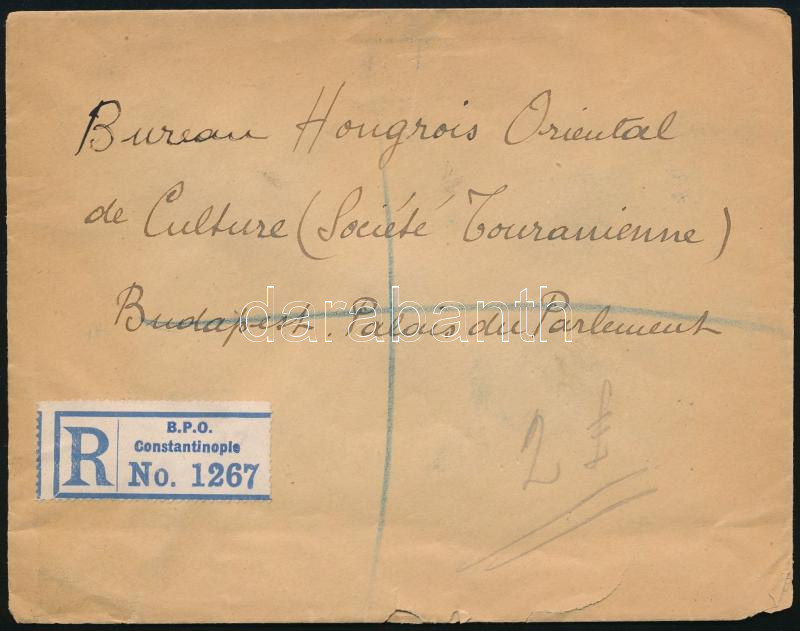 Bureau Hongrois Oriental
de Culture (Société Touranienne)
Budapest. Palais du Parlement
darabanth
R
B.P.O.
Constantinople
No. 1267
2